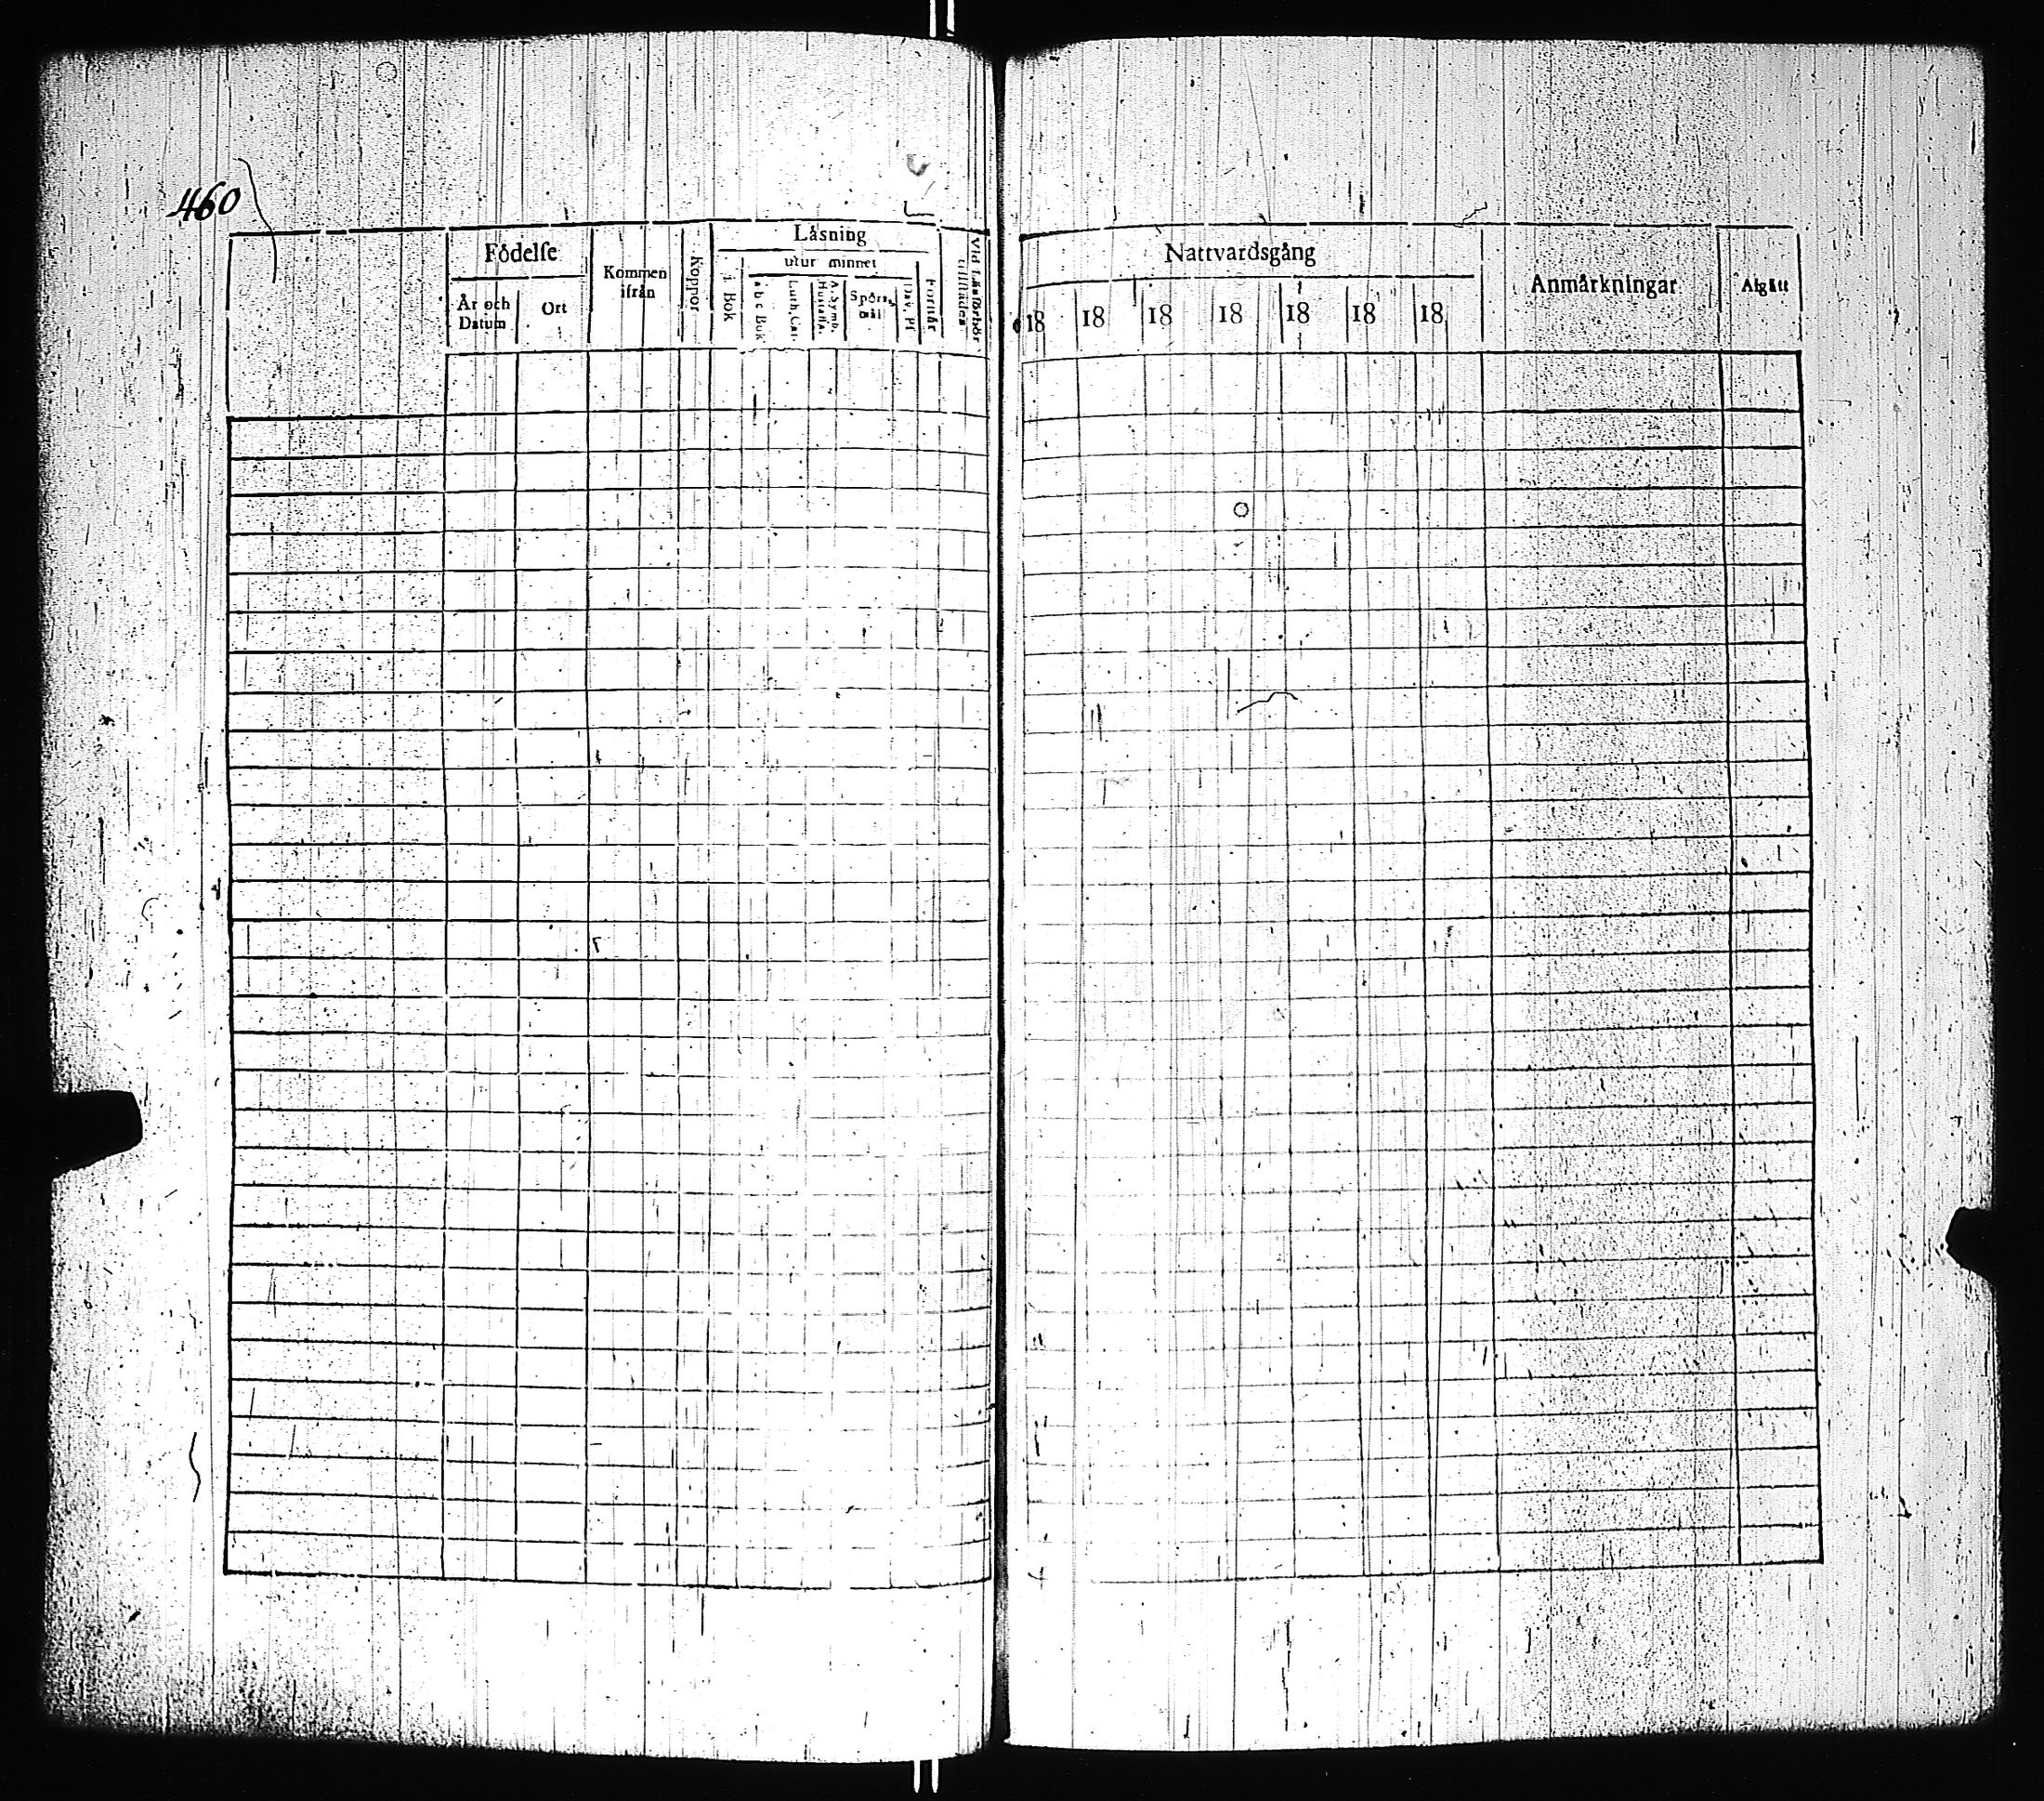 460
Födelse
År och Datum
Ort
Kommen ifrån
Koppor
Läsning
I Bok
utur minnet
a b c Bok
Luth. Cat.
A. Symb. Hustafla.
Spörsmål
Dav. Ps.
Förstår
Vid Läsförhör tillstädes
Nattvardsgång
18 18 18 18 18 18 18
Anmärkningar
Afgått